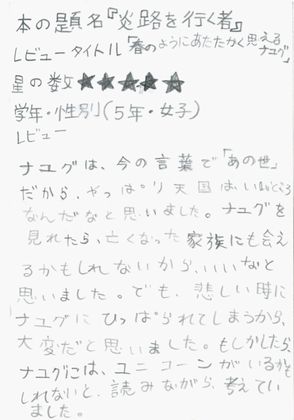 本の題名『炎路を行く者』
レビュータイトル「春のようにあたたかく思えるナユグ」
星の数★★★★★
学年・性別(5年・女子)
レビュー
ナユグは、今の言葉で「あの世」
だから、やっぱり天国は、いいところ
なんだなと思いました。ナユグを
見れたら、亡くなった家族にも会え
るかもしれないから、いいなと
思いました。でも、悲しい時に
ナユグにひっぱられてしまうから、
大変だと思いました。もしかしたら、
ナユグには、ユニコーンがいるかも
しれないと、読みながら、考えてい
ました。